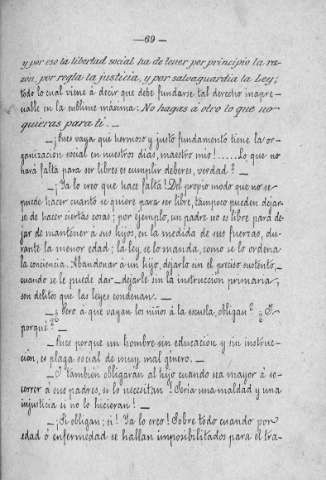 —69—
y por eso la libertad social ha de tener por principio la ra-
zon, por regla la justicia, y por salvaguardia la Ley;
todo lo cual viene á decir que debe fundarse tal derecho inapre-
ciable en la sublime máxima: No hagas á otro lo que no
quieras para ti. —
—¡Pues vaya qué hermoso y justo fundamento tiene la or-
ganizacion social en nuestros dias, maestro mio!..... Lo que no
hará falta para ser libres es cumplir deberes, verdad? —
—¡Ya lo creo que hace falta! Del propio modo que no se
puede hacer cuanto se quiere para ser libre, tampoco pueden dejar-
se de hacer ciertas cosas; por ejemplo, un padre no es libre para de-
jar de mantener á sus hijos, en la medida de sus fuerzas, du-
rante la menor edad; la ley se lo manda, como se lo ordena
la conciencia. Abandonar á un hijo, dejarlo sin el preciso sustento,—
cuando se le puede dar—dejarle sin la instruccion primaria,
son delitos que las leyes condenan. —
—¿Pero á que vayan los niños á la escuela, obligan? ¿Y
porqué? —
—Pues porque un hombre sin educacion y sin instruc-
cion, es plaga social de muy mal género. —
—Y también obligarán al hijo cuando sea mayor á so-
correr á sus padres, si lo necesitan? Sería una maldad y una
injusticia si no lo hicieran! —
—¡Si obligan; si! Ya lo creo! Sobre todo cuando por
edad ó enfermedad se hallan imposibilitados para el tra-